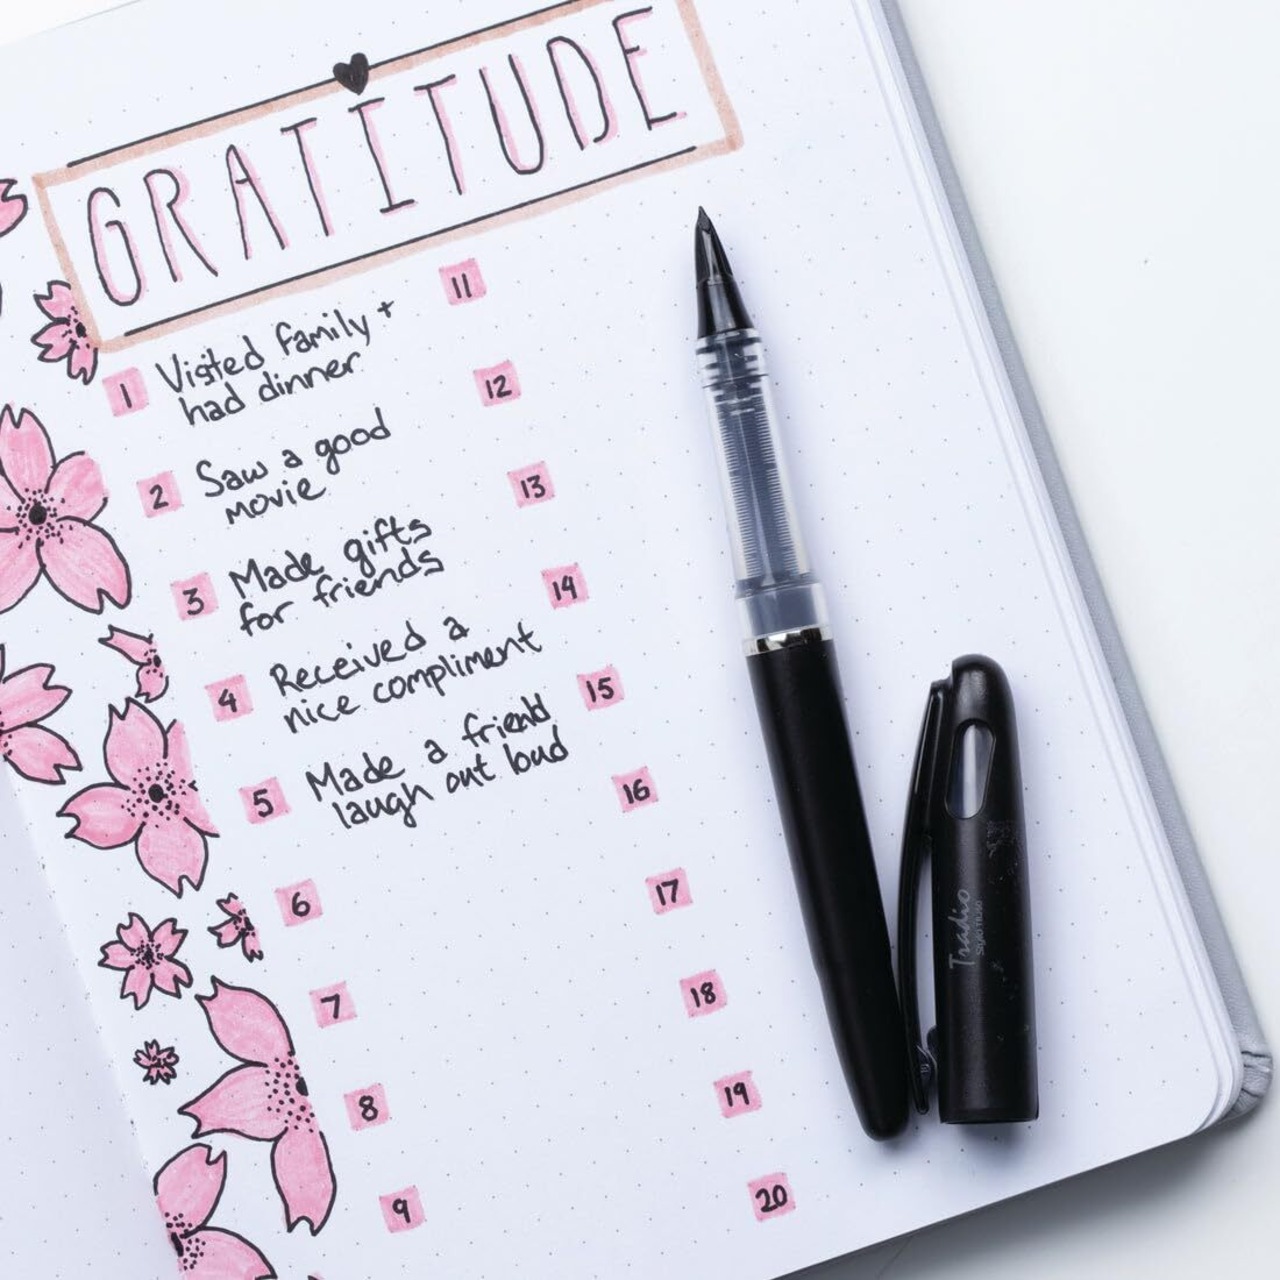 GRATITUDE
1 Visited family +
had dinner
2 Saw a good
movie
3 Made gifts
for friends
4 Received a
nice compliment
5 Made a friend
laugh out loud
6
7
8
9
11
12
13
14
15
16
17
18
19
20
Tradio
Stylo Plume